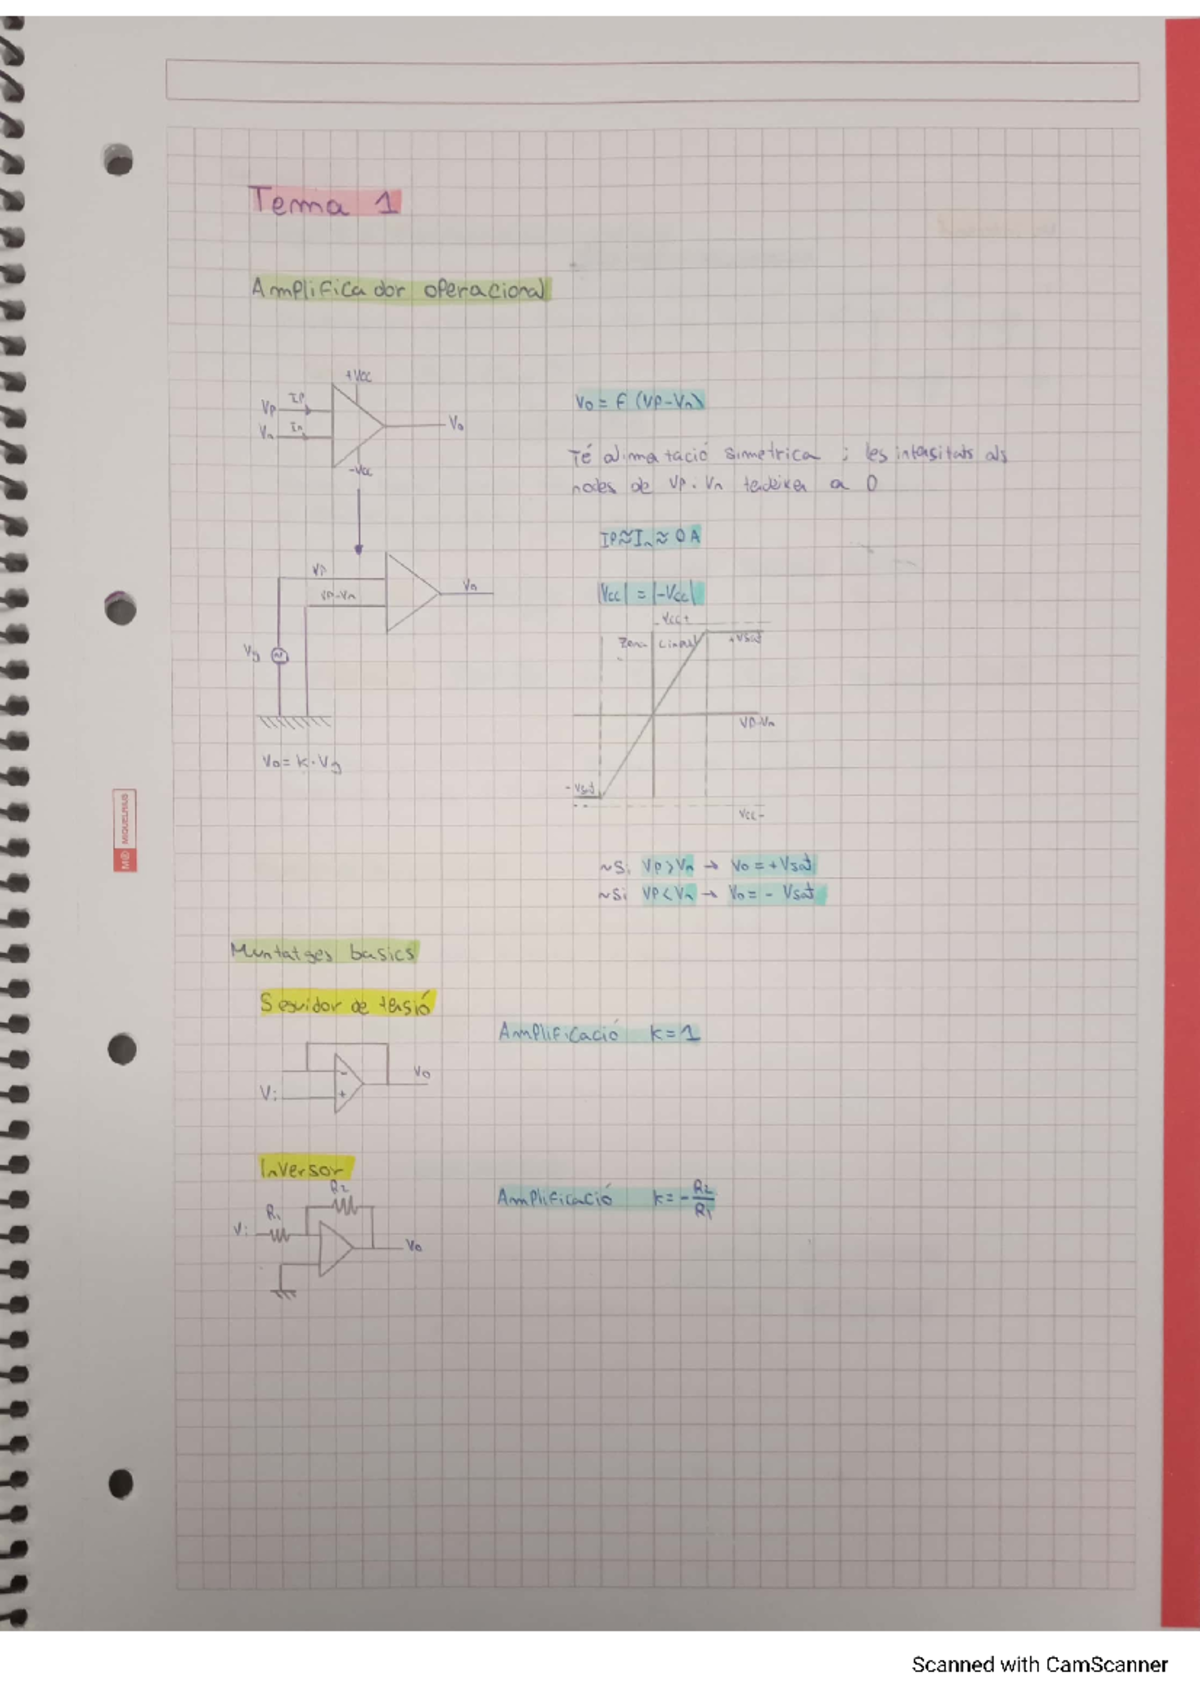 Tema 1
Amplificador operacional
+Vcc
Vp Ip
Vn In
Vo
-Vcc
Vo = F (Vp-Vn)
Té alimatació simetrica ; les intensitats als
nodes de Vp . Vn tendeixen a 0
Ip≈In≈0A
|Vcc| = |-Vcc|
Vp
Vp-Vn
Vo
Vg
Vo= k·Vg
Vcc+
Zona Lineal
+Vsat
Vp-Vn
-Vsat
Vcc-
~Si Vp>Vn → Vo=+Vsat
~Si Vp<Vn → Vo= - Vsat
Muntatges basics
Seguidor de tensió
Amplificació k=1
-
+
Vi
Vo
Inversor
Amplificació k= -R2/R1
R2
R1
Vi
Vo
M® MIQUELRIUS
Scanned with CamScanner